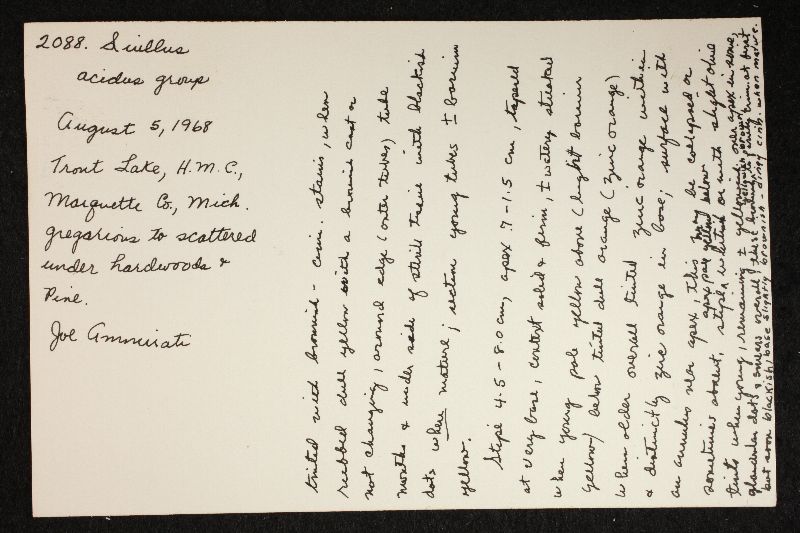 2088. Suillus
acidus group
August 5, 1968
Trout Lake, H.M.C.,
Marquette Co., Mich.
gregarious to scattered
under hardwoods &
Pine.
Joe Ammirati
tinted with brownish - cinn. stains, when
rubbed dull yellow with a brownish cast or
not changing, around edge (outer tubes) tube
mouths & under side of sterile tissue with blackish
dots when mature; section young tubes ± barium
yellow.
Stipe 4.5-8.0 cm, apex 7-1.5 cm, tapered
at very base, context solid & firm, ± watery streaked
when young pale yellow above (light barium
yellow) below tinted dull orange (zinc orange)
when older overall tinted zinc orange within
& distinctly zinc orange in base; surface with
an annulus near apex, this may be collapsed or
sometimes absent, apex pale yellow below
stipe whitish or with slight olive
tints when young, remaining ± yellowish over apex in some,
glandular dots & smears overall, these at first
but soon blackish, base slightly brownish - dingy cinn. when mature.